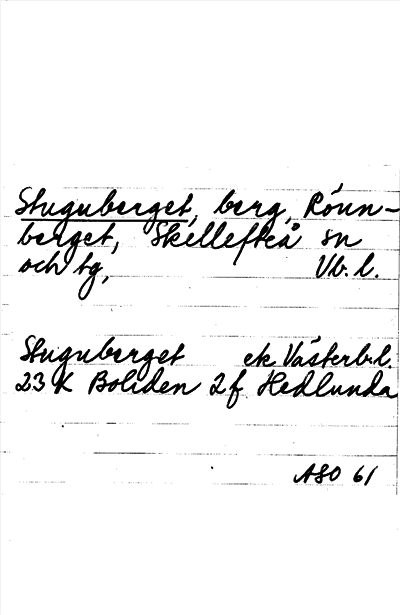 Stuguberget, berg, Rönn-
berget, Skellefteå sn
och tg, Vb. l.
Stuguberget ek Västerb.l.
23 K Boliden 2 f Hedlunda
ASO 61